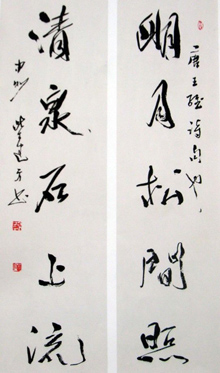 唐王維詩句也
明月松間照
清泉石上流